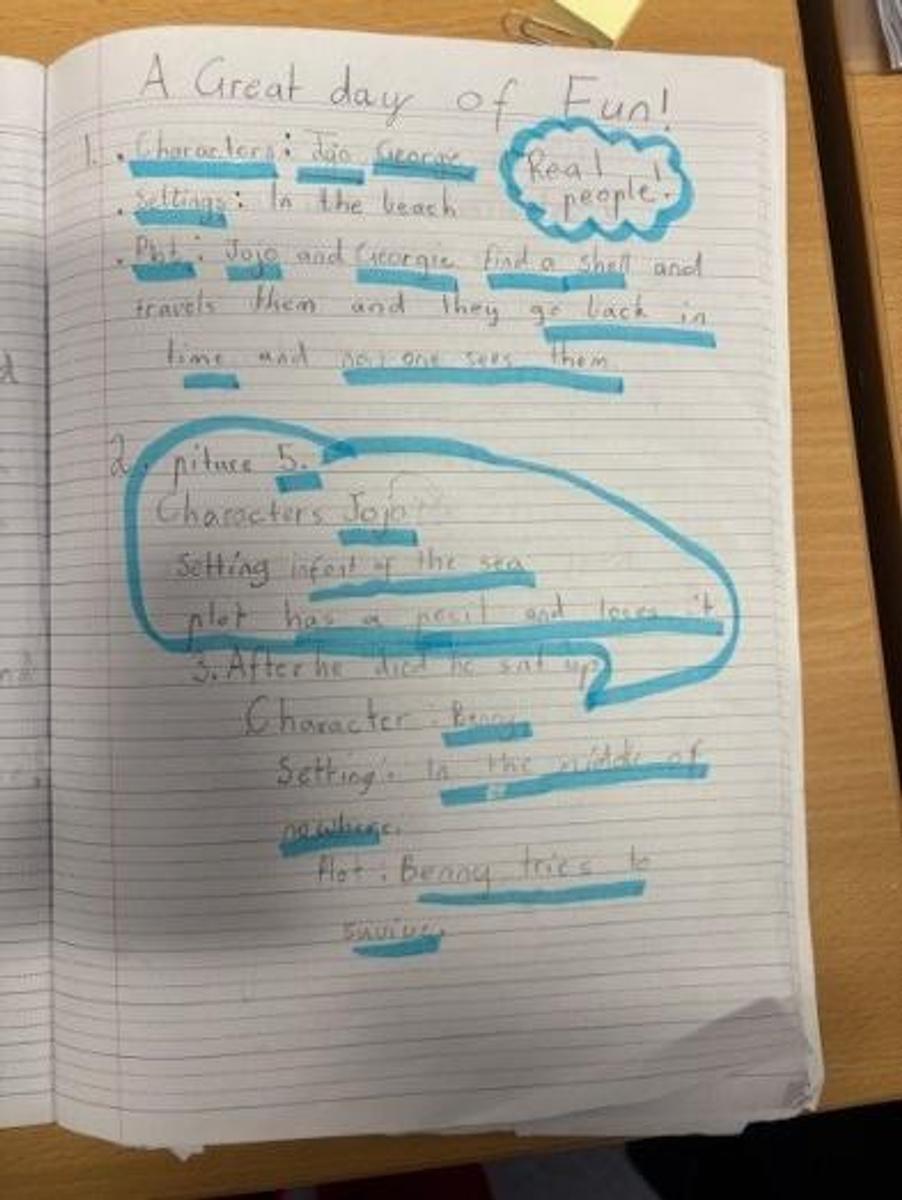 A Great day of Fun!
1. . Characters: Jojo Georgie
Real people!
. Settings: In the beach
. Plot: Jojo and Georgie find a shell and
travels them and they go back in
time and no one sees them
2. piture 5.
Characters Jojo
Setting of the sea
plot has a and loses it
3. After he died he sat up
Character: Benny
Setting: In the middle of
nowhere.
Plot: Benny tries to
suvive.